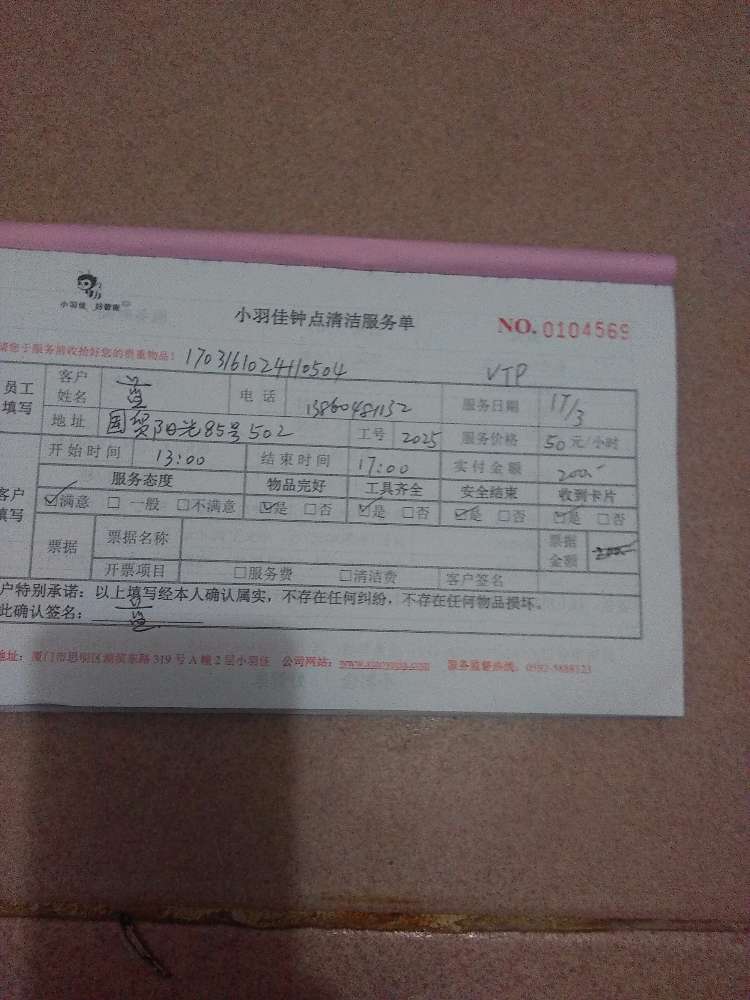 小羽佳 好管家
小羽佳钟点清洁服务单
NO. 0104569
请您于服务前收拾好您的贵重物品！ 1703161024110504 VTP
员工填写 客户姓名 电话 13860481132 服务日期 17/3
地址 国贸阳光85号502 工号 2025 服务价格 50元/小时
开始时间 13:00 结束时间 17:00 实付金额 200.-
客户填写 服务态度 物品完好 工具齐全 安全结束 收到卡片
☑满意 □一般 □不满意 ☑是 □否 ☑是 □否 ☑是 □否 ☑是 □否
票据 票据名称 票据金额 200.-
开票项目 □服务费 □清洁费 客户签名
户特别承诺：以上填写经本人确认属实，不存在任何纠纷，不存在任何物品损坏。
此确认签名：
地址：厦门市思明区湖滨东路319号A幢2层小羽佳 公司网站： 服务监督热线：0592-5888123